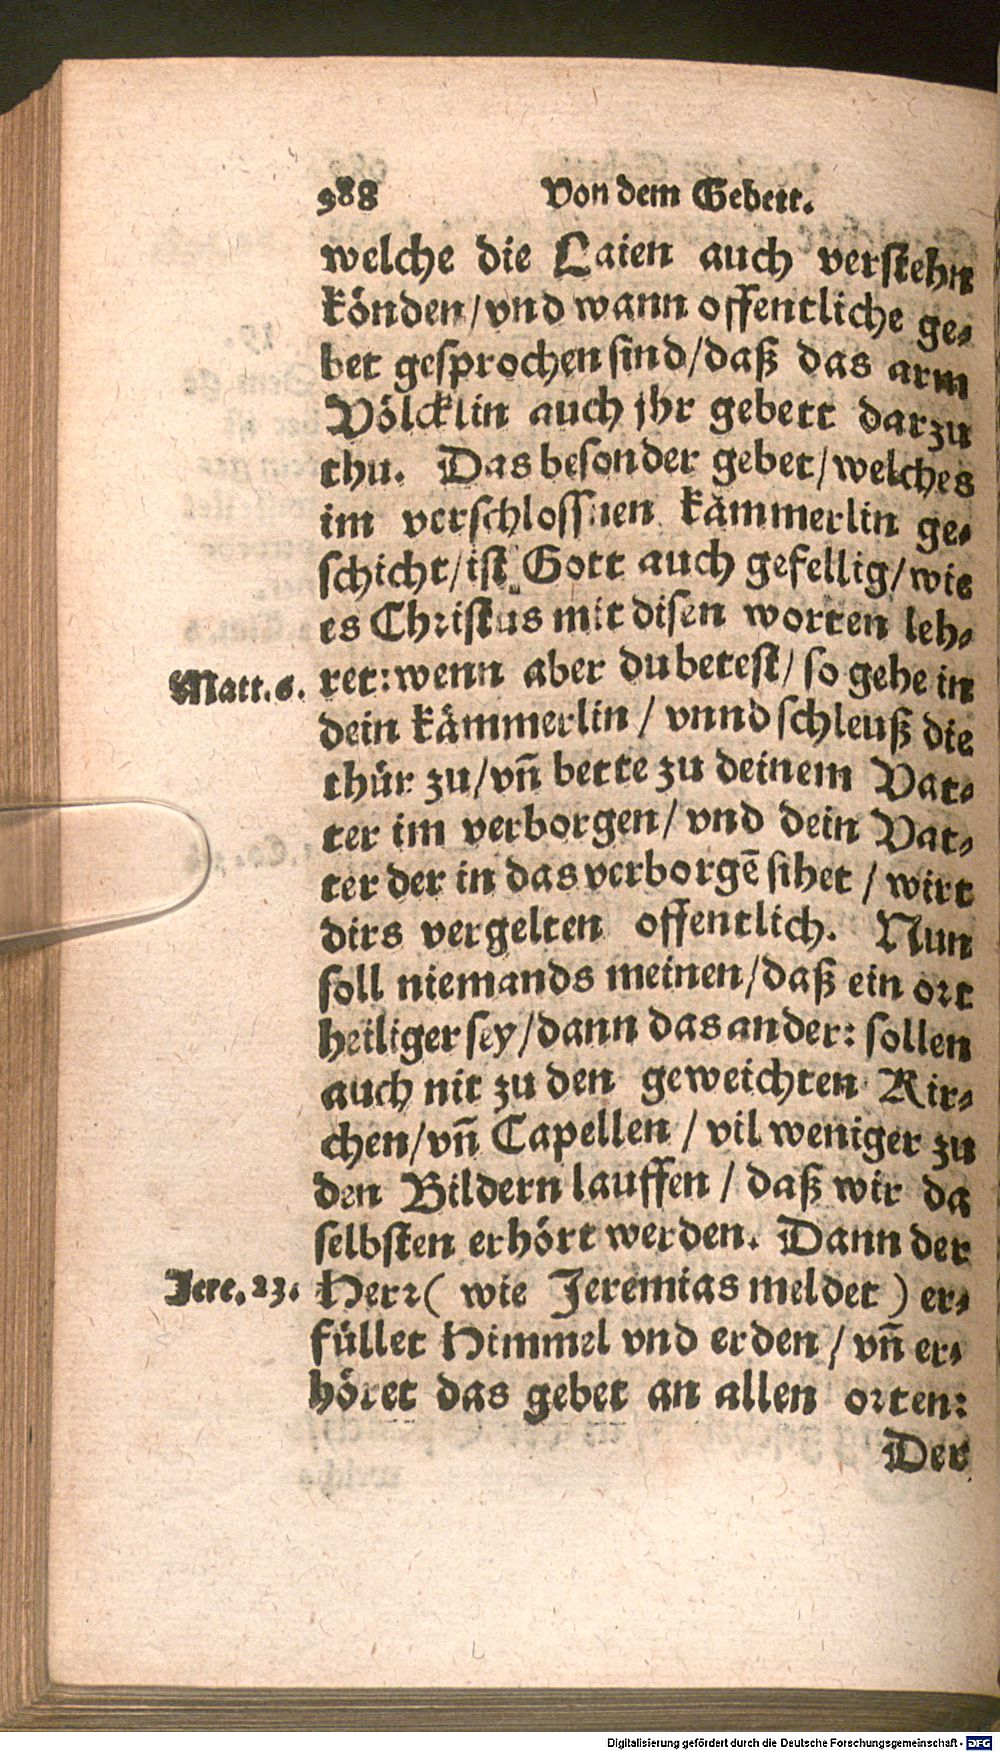 988 Von dem Gebett.
welche die Laien auch verstehn
könden/vnd wann offentliche ge-
bet gesprochen sind/daß das arm
Völcklin auch jhr gebett darzu
thu. Das besonder gebet/welches
im verschlossnen kämmerlin ge-
schicht/ist Gott auch gefellig/wie
es Christus mit disen worten leh-
Matt. 6. ret: wenn aber du betest/ so gehe in
dein kämmerlin / vnnd schleuß die
thür zu/vñ bette zu deinem Vat-
ter im verborgen/ vnd dein Vat-
ter der in das verborgē sihet / wirt
dirs vergelten offentlich. Nun
soll niemands meinen/daß ein ort
heiliger sey/dann das ander: sollen
auch nit zu den geweichten Kir-
chen/vñ Capellen / vil weniger zu
den Bildern lauffen / daß wir da
selbsten erhört werden. Dann der
Jere. 23. Herr ( wie Jeremias meldet ) er-
füllet Himmel vnd erden / vñ er-
höret das gebet an allen orten:
Der
Digitalisierung gefördert durch die Deutsche Forschungsgemeinschaft - DFG